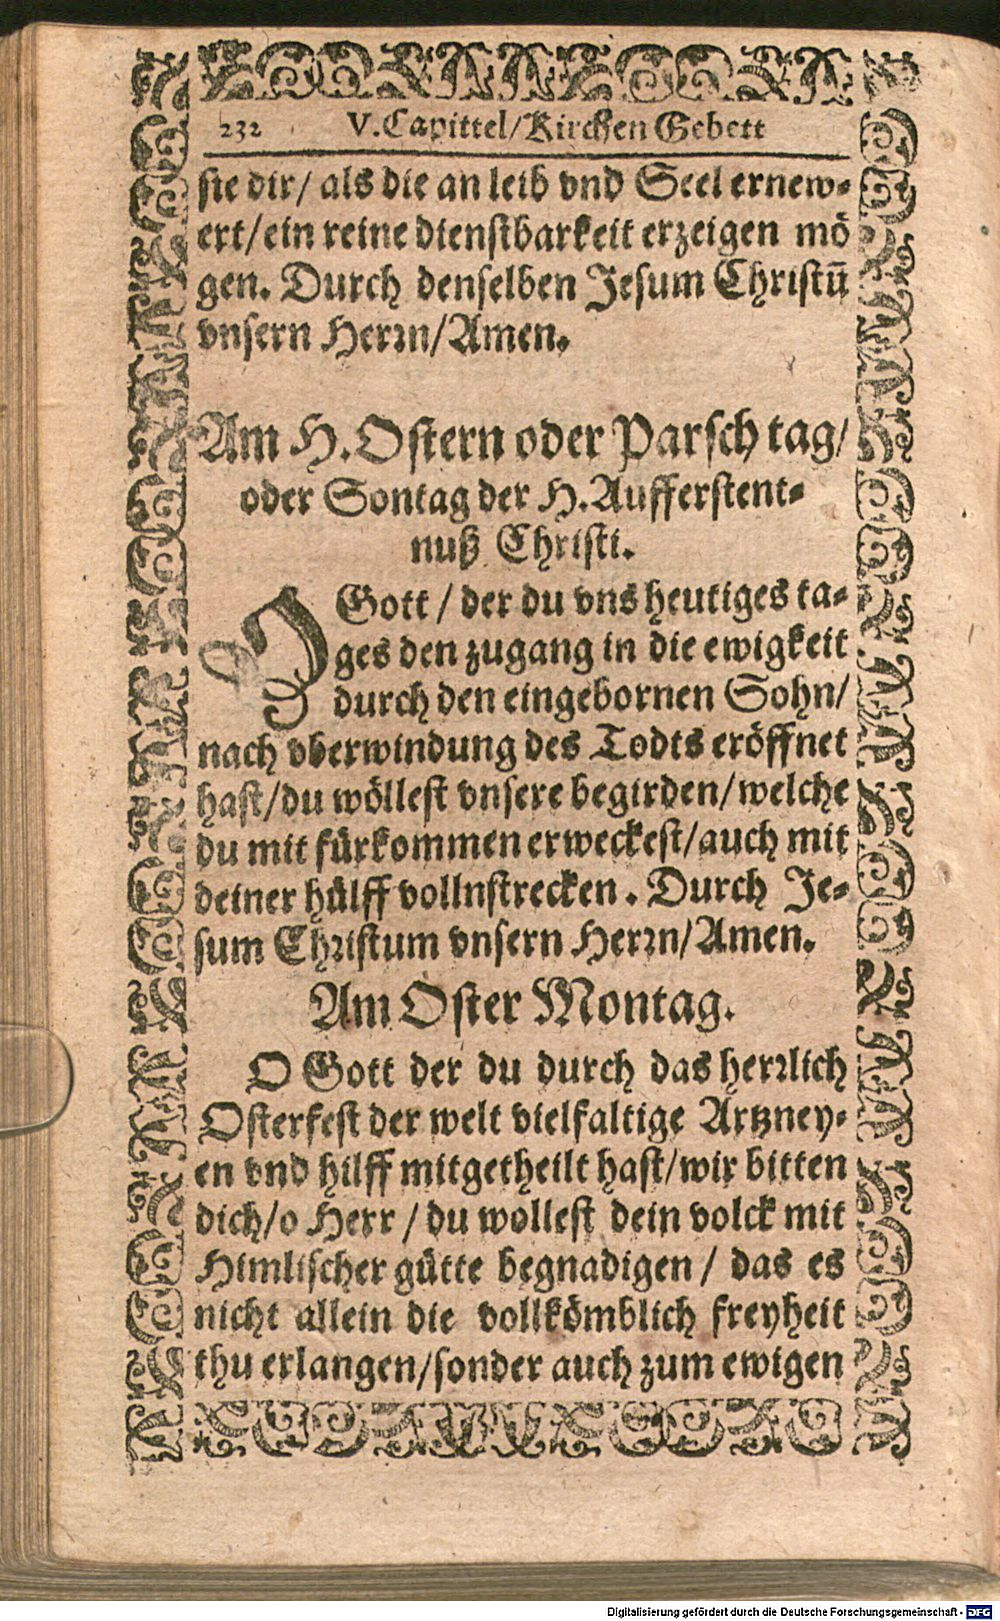 232 V. Capittel/Kirchen Gebett
sie dir/ als die an leib vnd Seel ernew-
ert/ein reine dienstbarkeit erzeigen mö
gen. Durch denselben Jesum Christū
vnsern Herrn/Amen.
Am H. Ostern oder Parsch tag/
oder Sontag der H. Aufferstent-
nuß Christi.
O Gott / der du vns heutiges ta-
ges den zugang in die ewigkeit
durch den eingebornen Sohn/
nach vberwindung des Todts eröffnet
hast/du wöllest vnsere begirden/welche
du mit fürkommen erweckest/auch mit
deiner hülff vollnstrecken. Durch Je-
sum Christum vnsern Herrn/Amen.
Am Oster Montag.
O Gott der du durch das herrlich
Osterfest der welt vielfaltige Artzney-
en vnd hilff mitgetheilt hast/wir bitten
dich/o Herr / du wollest dein volck mit
Himlischer gütte begnadigen / das es
nicht allein die vollkömblich freyheit
thu erlangen/sonder auch zum ewigen
Digitalisierung gefördert durch die Deutsche Forschungsgemeinschaft - DFG